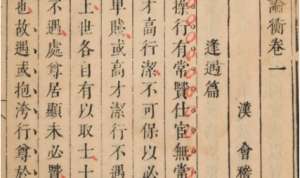 論衡卷一
漢 會稽
逢遇篇
操行有常賢仕宦無常
才高行潔不可保以必
卑賤或高才潔行不遇
不遇處尊居顯未必賢
上世各自有以取士士
也故遇或抱洿行尊於